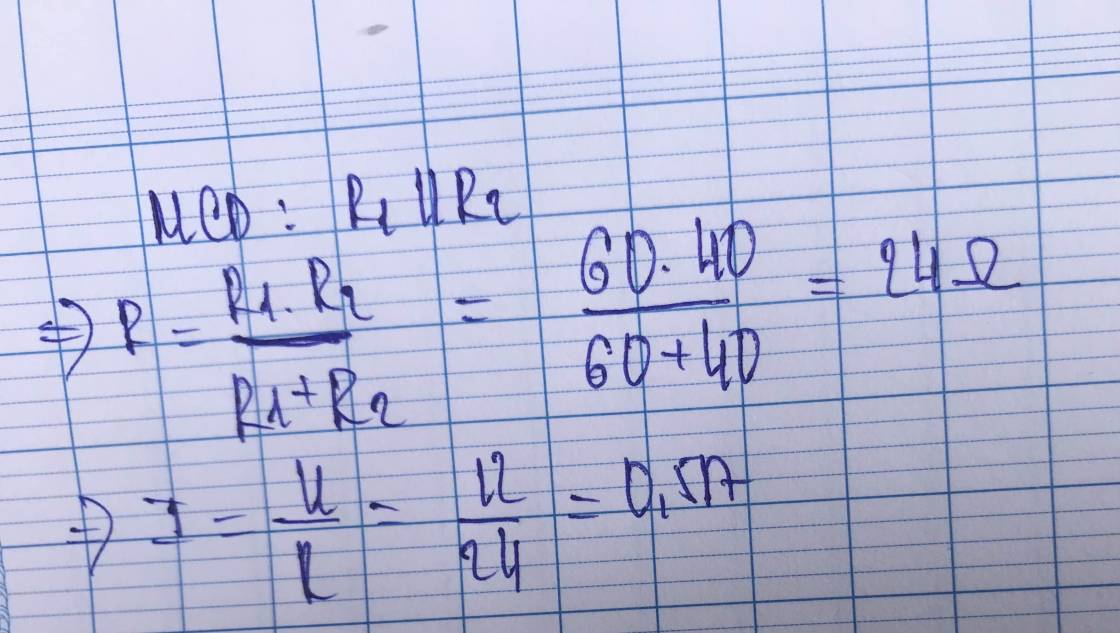 MCD : R1 || R2
=> R = R1.R2 / R1+R2 = 60.40 / 60+40 = 24Ω
=> I = U / R = 12 / 24 = 0,5A